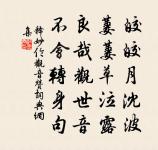 皎皎月沈波
萋萋草泣露
良哉觀世音
不會轉身句
釋妙倫觀音贊詞典網
集